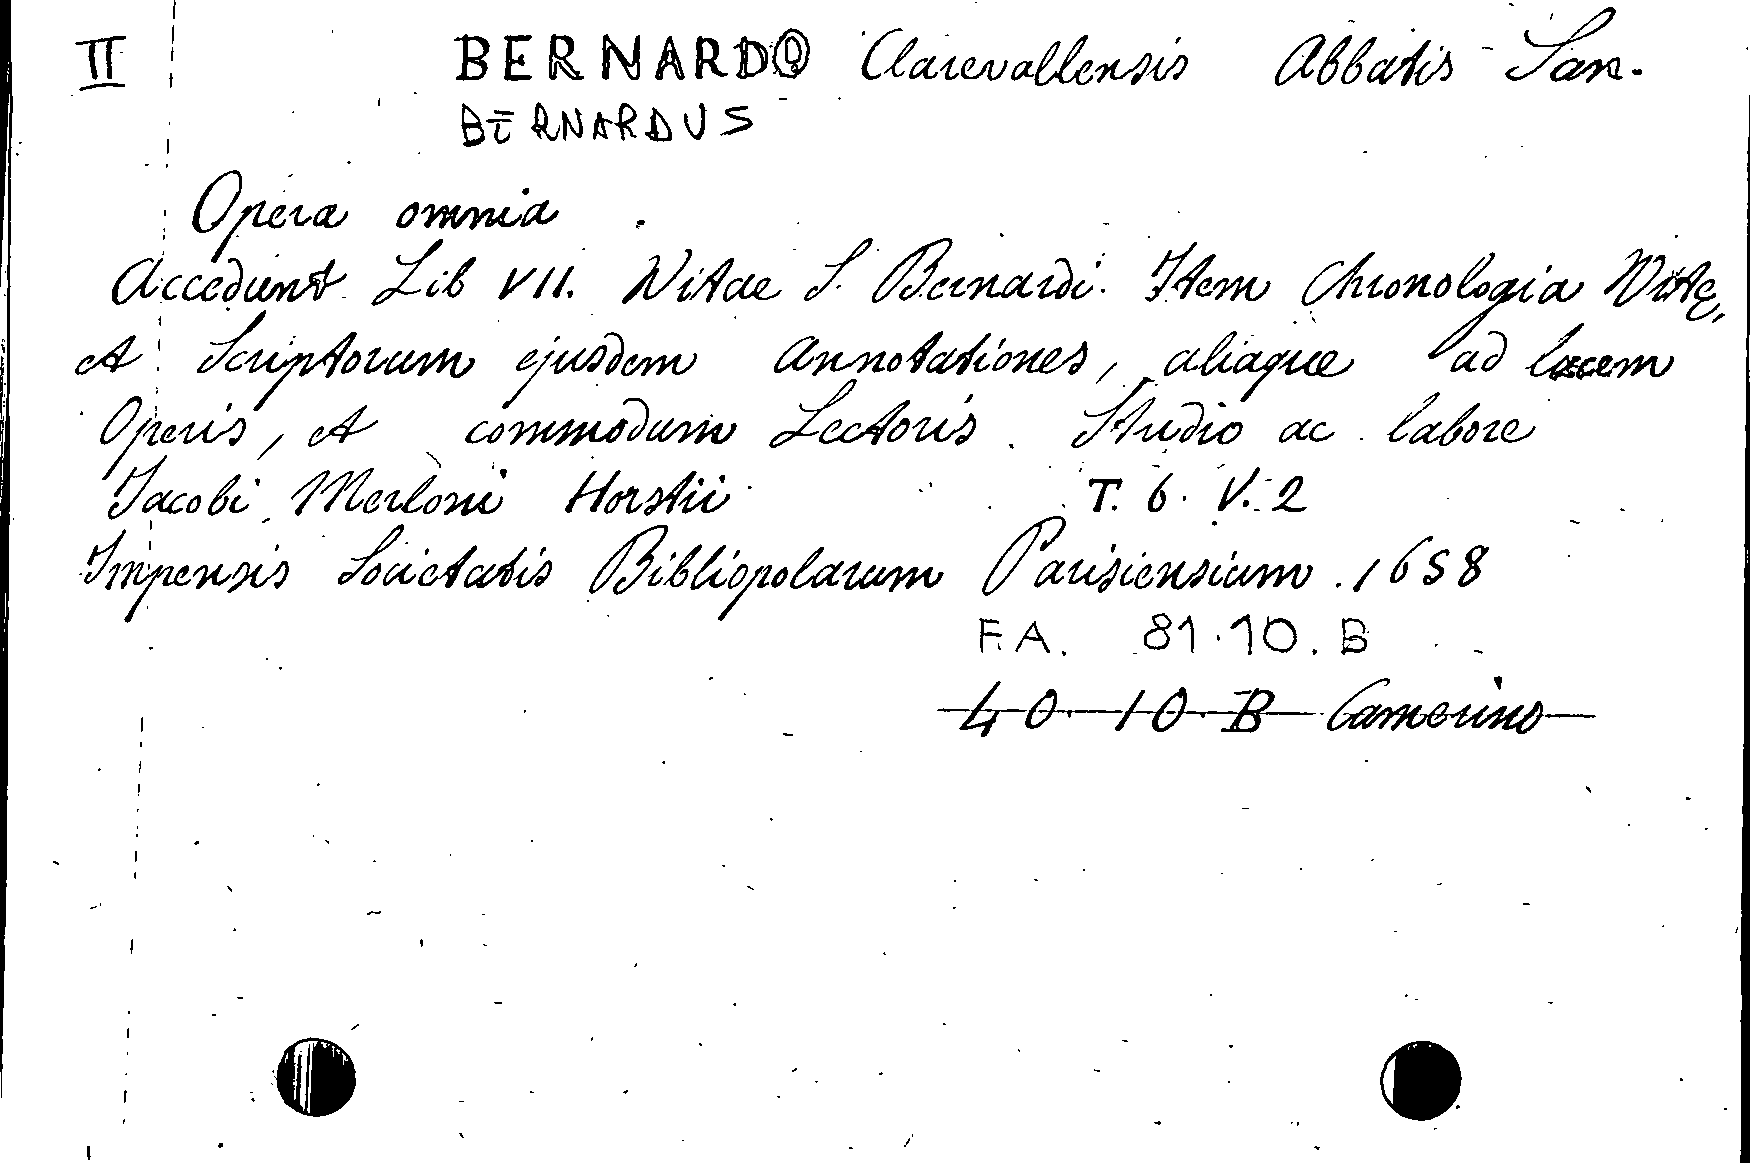 II BERNARDO Clarevallensis Abbatis San.
BERNARDUS
Opera omnia
Accedunt Lib VII. Vitae S. Bernardi. Item Chronologia Vitę,
et Scriptorum ejusdem annotationes, aliaque ad lucem
Operis, et commodum Lectoris. Studio ac labore
Jacobi Merloni Horstii T. 6. V. 2
Impensis Societatis Bibliopolarum Parisiensium. 1658
F.A. 81.10.B
40.10.B Camerino